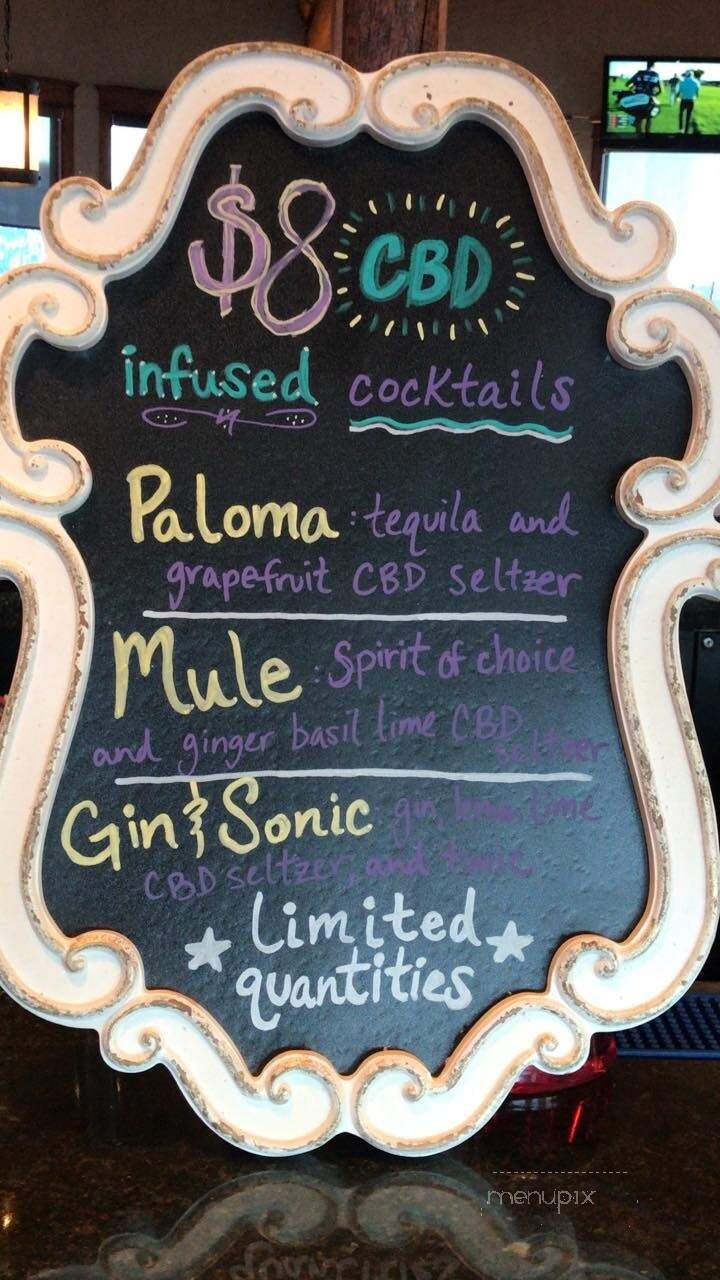 $8 CBD
infused cocktails
Paloma: tequila and
grapefruit CBD seltzer
Mule: Spirit of choice
and ginger basil lime CBD
seltzer
Gin & Sonic gin, lime
CBD seltzer, and tonic
Limited
quantities
menupix